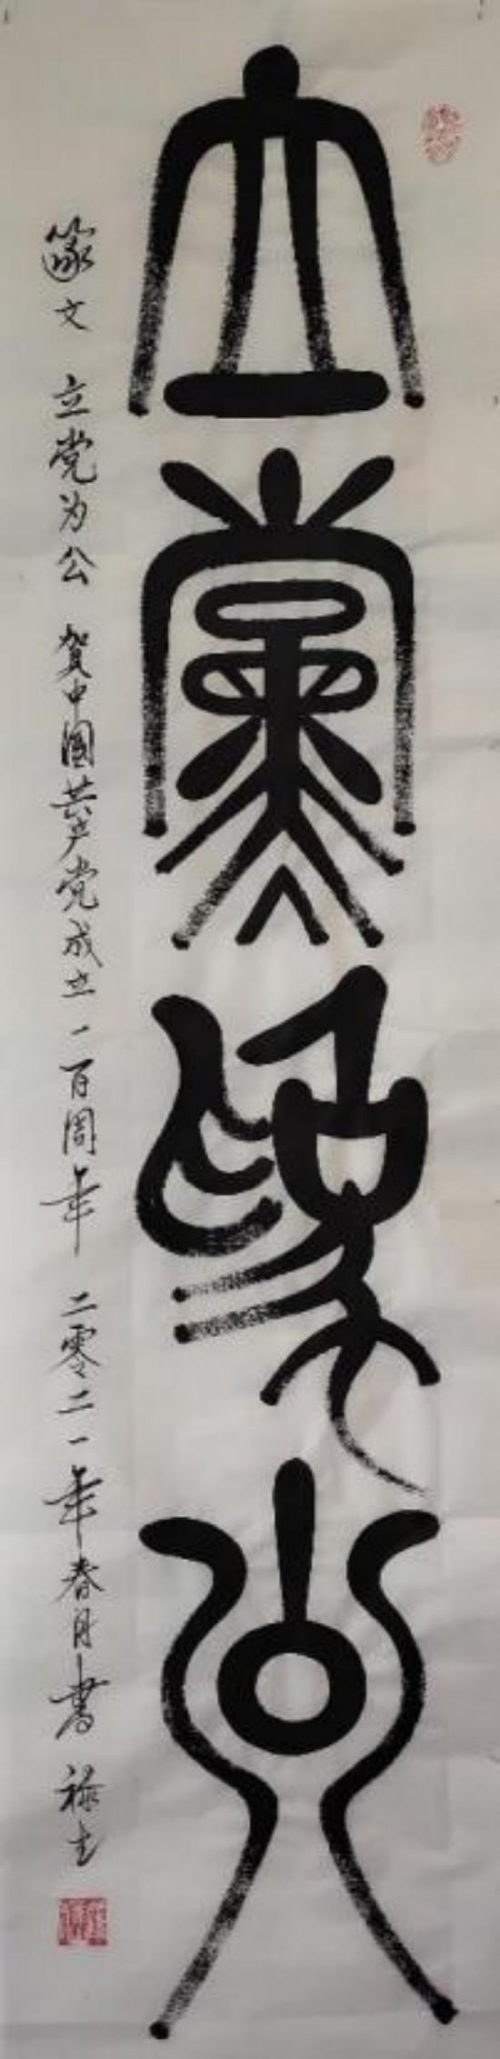 立黨為公
篆文 立党为公 贺中国共产党成立一百周年 二零二一年春月书 禄士